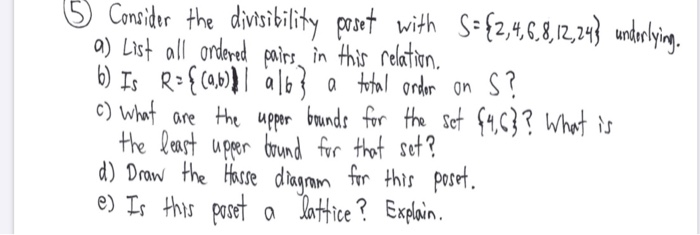 5 Consider the divisibility poset with S={2,4,6,8,12,24} underlying.
a) List all ordered pairs in this relation.
b) Is R={(a,b)| a|b} a total order on S?
c) What are the upper bounds for the set {4,6}? What is
the least upper bound for that set?
d) Draw the Hasse diagram for this poset.
e) Is this poset a lattice? Explain.